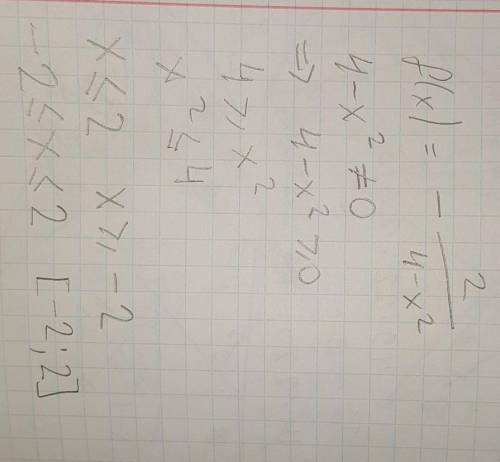 f(x) = - 2/(4-x²)
4-x² ≠ 0
⇒ 4-x² ⩾ 0
4 ⩾ x²
x² ≤ 4
x ≤ 2 x ⩾ -2
-2 ≤ x ≤ 2 [-2; 2]